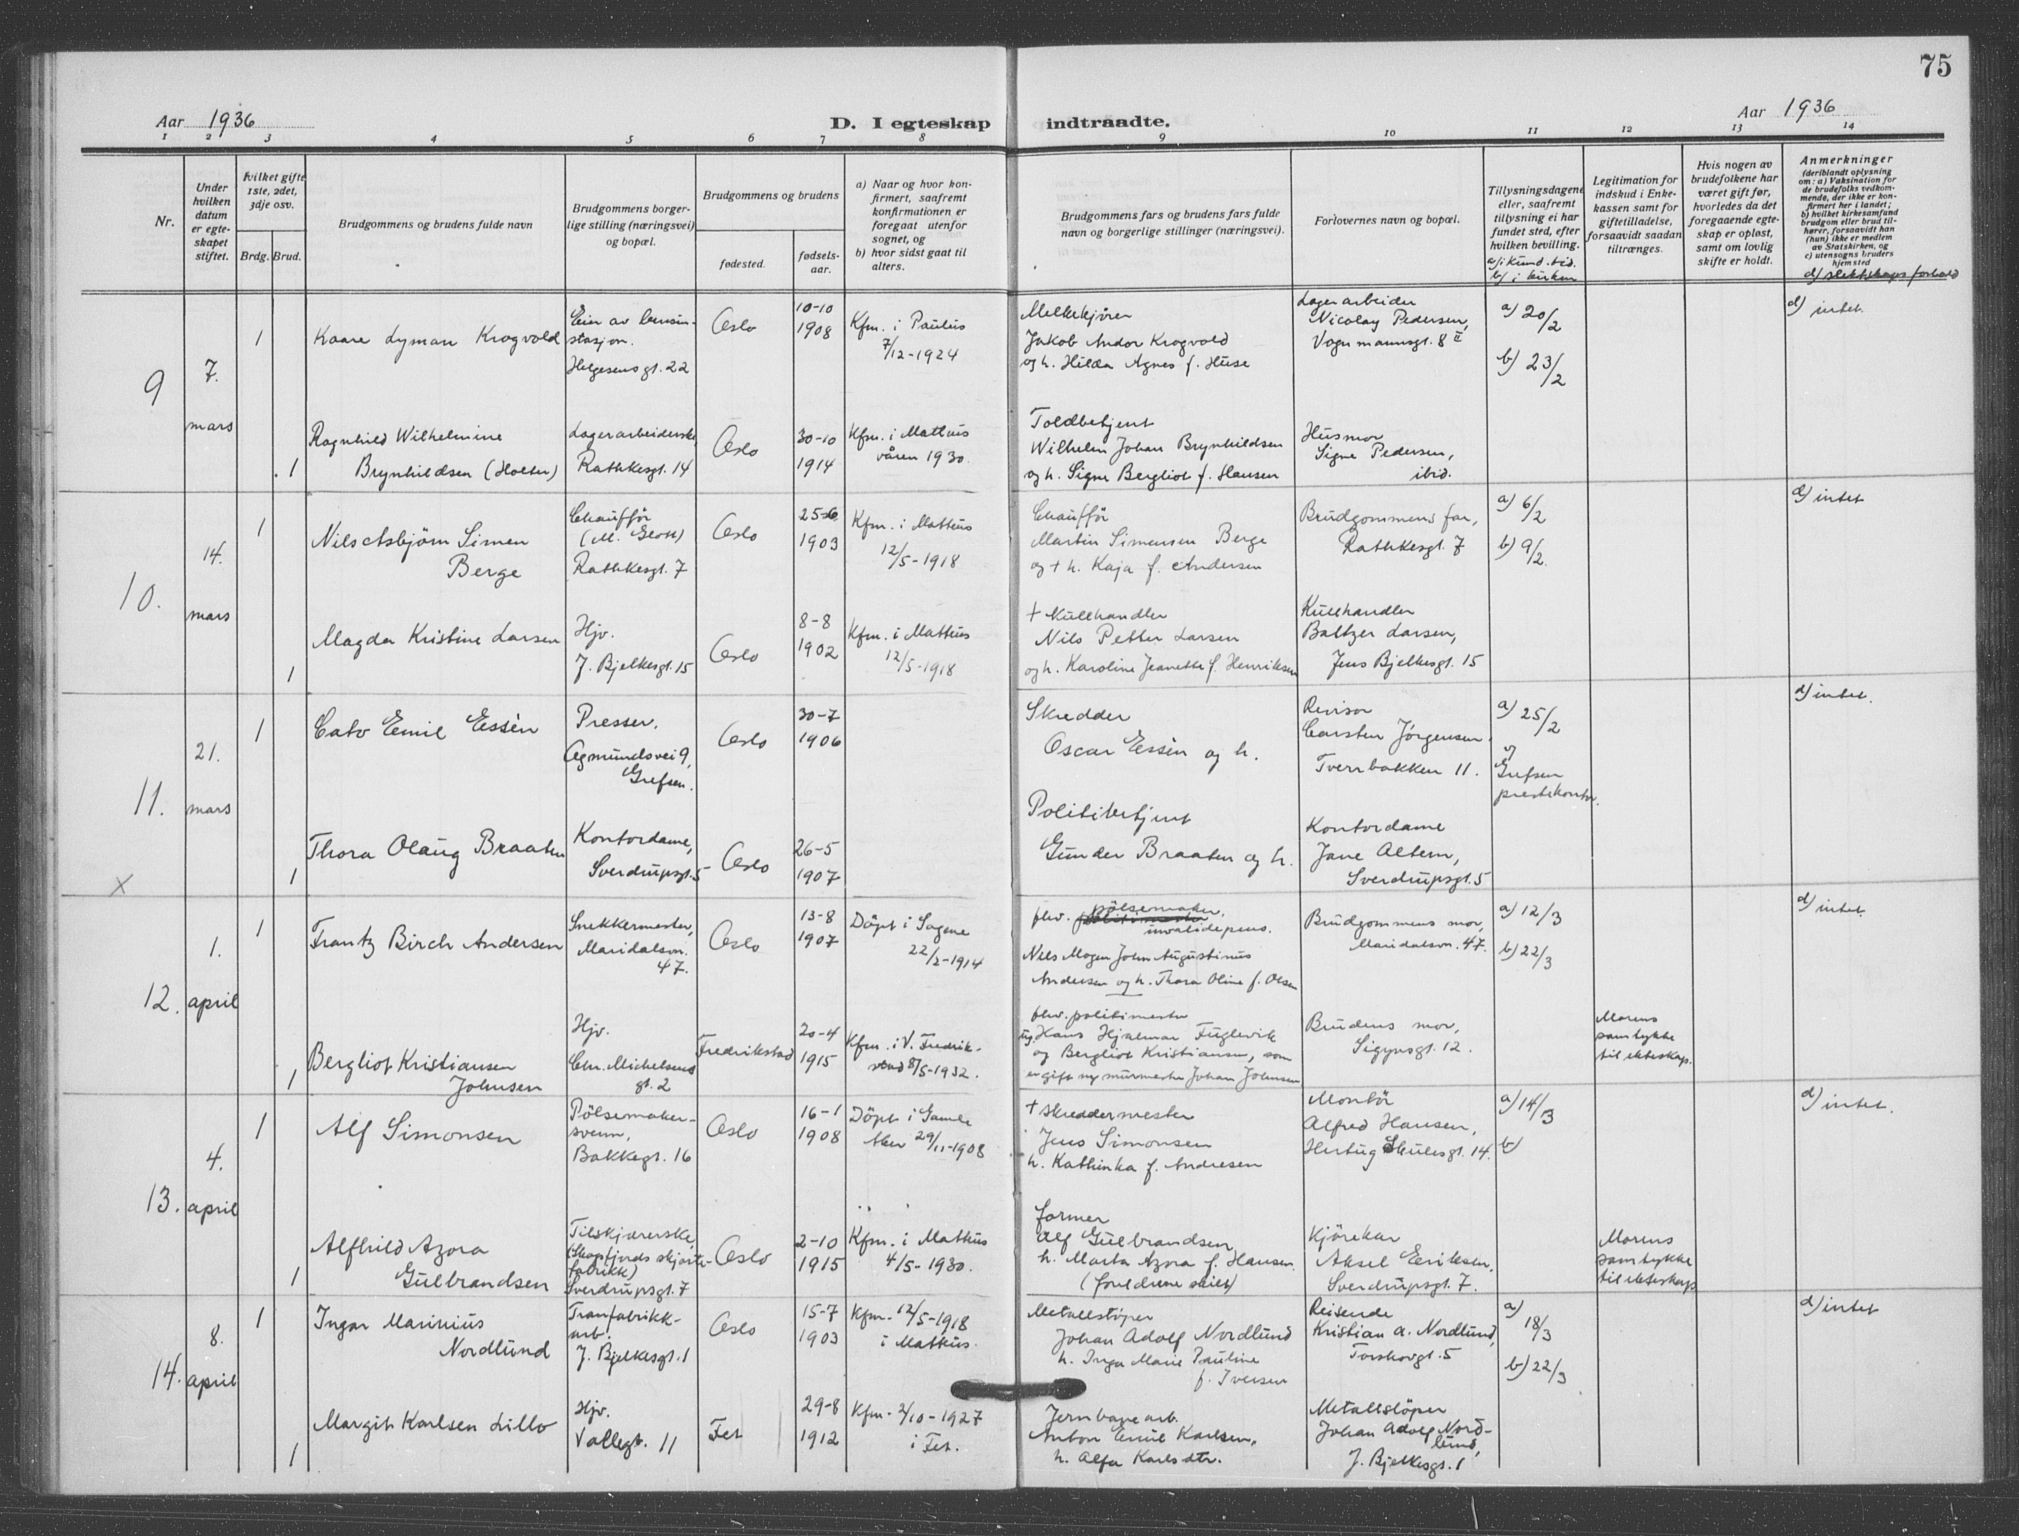 75
Aar 1936
D. I egteskap
indtraadte.
Aar 1936
1 2 3 4 5 6 7 8 9 10 11 12 13 14
Nr.
Under
hvilken
datum
er egte-
skapet
stiftet.
hvilket gifte,
1ste, 2det,
3dje osv.
Brdg. Brud.
Brudgommens og brudens fulde navn
Brudgommens borger-
lige stilling (næringsvei)
og bopæl.
Brudgommens og brudens
fødested.
fødsels-
aar.
a) Naar og hvor kon-
firmert, saafremt
konfirmationen er
foregaat utenfor
sognet, og
b) hvor sidst gaat til
alters.
Brudgommens fars og brudens fars fulde
navn og borgerlige stillinger (næringsvei).
Forlovernes navn og bopæl.
Tillysningsdagene
eller, saafremt
tillysning ei har
fundet sted, efter
hvilken bevilling.
a/ i Kund.tid.
b/ i kirken
Legitimation for
indskud i Enke-
kassen samt for
giftetilladelse,
forsaavidt saadan
tiltrænges.
Hvis nogen av
brudefolkene har
været gift før,
hvorledes da det
foregaaende egte-
skap er opløst,
samt om lovlig
skifte er holdt.
Anmerkninger
(deriblandt oplysning
om: a) Vaksination for
de brudefolks vedkom-
mende, der ikke er kon-
firmert her i landet;
b) hvilket kirkesamfund
brudgom eller brud til-
hører, forsaavidt han
(hun) ikke er medlem
av Statskirken, og
c) utensogns bruders
hjemsted
d) slektskapsforhold
9
7.
mars
1
Kaare Lyman Krogvold
Eier av bensin-
stasjon.
Helgesensgt. 22
Oslo
10-10
1908
Kfm. i Paulus
7/12-1924
Melkekjører
Jakob Andor Krogvold
og h. Hilda Agnes f. Huse
Lagerarbeider
Nicolay Pedersen,
Vognmannsgt. 8 II
a) 20/2
b) 23/2
d) intet.
1
Ragnhild Wilhelmine
Brynhildsen (Holter)
Lagerarbeiderske
Rathkesgt. 14
Oslo
30-10
1914
Kfm. i Matheus
våren 1930.
Toldbetjent
Wilhelm Johan Brynhildsen
og h. Signe Bergliot f. Hansen
Husmor
Signe Pedersen,
ibid.
10.
14.
mars
1
Nils Asbjørn Simen
Berge
Chauffør
Rathkesgt. 7
Oslo
25-6
1903
Kfm. i Matheus
12/5-1918
Chauffør
Martin Simensen Berge
og + h. Kaja f. Andersen
Brudgommens far,
Rathkesgt. 7
a) 6/2
b) 9/2.
d) intet
1
Magda Kristine Larsen
Hjv.
J. Bjelkesgt. 15
Oslo
8-8
1902
Kfm. i Matheus
12/5-1918
+ Kullhandler
Nils Petter Larsen
og h. Karoline Jeanette f. Henriksen
Kullhandler
Baltzer Larsen,
Jens Bjelkesgt. 15
11.
21.
mars
1
Cato Emil Essén
Presser,
Agmundsvei 9,
Grefsen.
Oslo
30-7
1906
Skredder
Oscar Essén og h.
Revisor
Carsten Jørgensen
Tverrbakken 11.
a) 25/2
Grefsen
prestekontor.
d) intet.
X
1
Thora Olaug Braaten
Kontordame,
Sverdrupsgt. 5
Oslo
26-5
1907
Politibetjent
Gunder Braaten og h.
Kontordame
Jane Altern,
Sverdrupsgt. 5
12.
1.
april
1
Frantz Birch Andersen
Snekkermester,
Maridalsvn.
47.
Oslo
13-8
1907
Döpt i Sagene
22/2-1914
fhv. pölsemaker,
invalidepens.
Nils Mogen John Augustinus
Andersen og h. Thora Oline f. Olsen
Brudgommens mor,
Maridalsvn. 47.
a) 12/3
b) 22/3
d) intet.
1
Bergliot Kristiansen
Johnsen
Hjv.
Chr. Michelsens
gt. 2
Fredrikstad
20-4
1915
Kfm. i V. Fredrik-
stad 8/5-1932.
fhv. politimester
Hans Hjalmar Fuglevik
og Bergliot Kristiansen, som
er gift m/ murmester Johan Johnsen
Brudens mor,
Sigynsgt. 12.
Morens
samtykke
til ekteskap.
13.
4.
april
1
Alf Simonsen
Pölsemaker-
svenn,
Bakkegt. 16
Oslo
16-1
1908
Döpt i Gamle
Aker 29/11-1908
+ skreddermester
Jens Simonsen
h. Kathinka f. Andresen
Montör
Alfred Hansen,
Hertug Skulesgt. 14.
a) 14/3
b)
d) intet.
1
Alfhild Azora
Gulbrandsen
Tilskjærerske
fabrikk)
Sverdrupsgt. 7
Oslo
2-10
1915
Kfm. i Matheus
4/5-1930.
former
Alf Gulbrandsen
h. Marta Azora f. Hansen.
(foreldrene skilt)
Kjörekar
Aksel Eriksen,
Sverdrupsgt. 7.
Morens
samtykke
til ekteskap
14.
8.
april
1
Ingar Marinius
Nordlund
Tranfabrikk-
arb.
J. Bjelkesgt. 1
Oslo
15-7
1903
Kfm. 12/5-1918
i Matheus.
Metallstöper
Johan Adolf Nordlund
h. Inga Marie Pauline
f. Iversen
Reisende
Kristian A. Nordlund,
Torshovgt. 5
a) 18/3
b) 22/3
d) intet
1
Margit Karlsen Lillo
Hjv.
Vallegt. 11
Fet
29-8
1912
Kfm. 2/10-1927
i Fet.
Jernbanearb.
Anton Emil Karlsen,
h. Alfa Karlsdtr.
Metallstöper
Johan Adolf Nord-
lund,
J. Bjelkesgt. 1